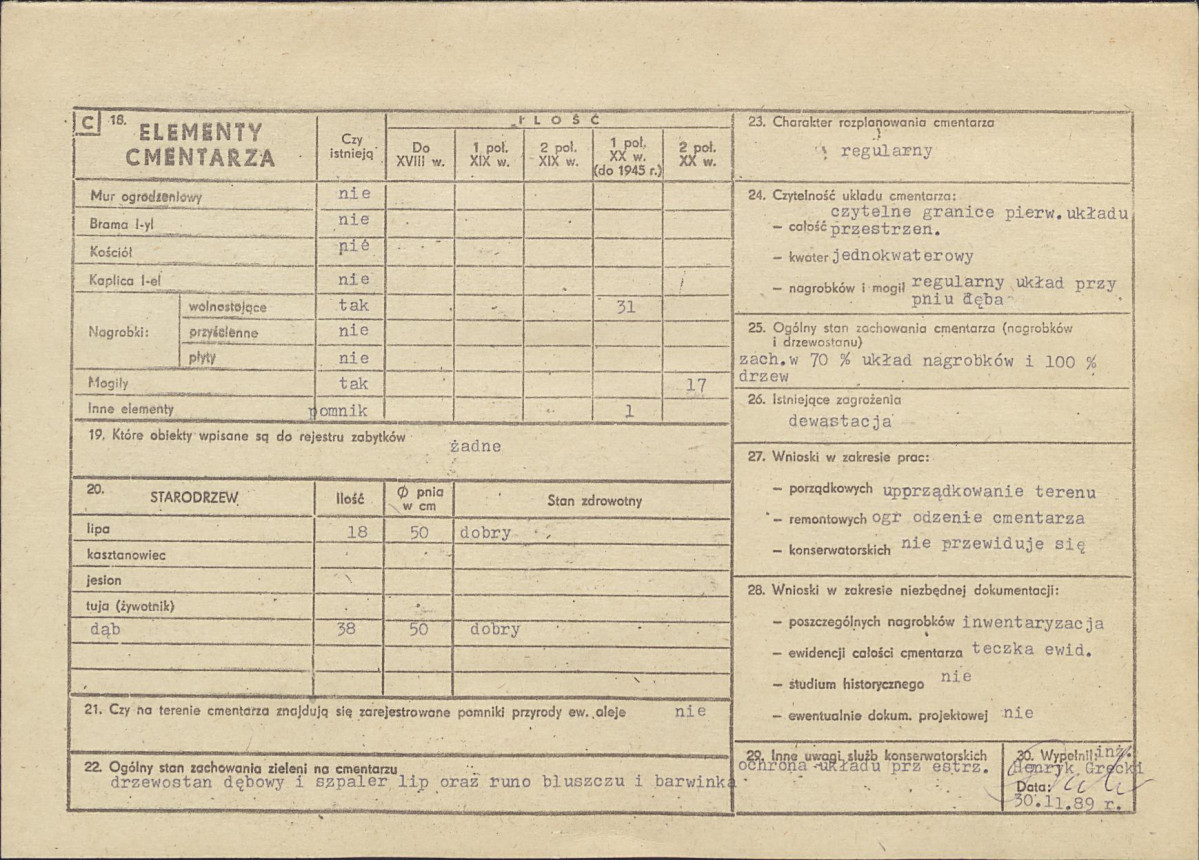 C 18. ELEMENTY CMENTARZA
Czy istnieją
IŁOŚĆ
Do XVIII w.
1 poł. XIX w.
2 poł. XIX w.
1 poł. XX w. (do 1945 r.)
2 poł. XX w.
Mur ogrodzeniowy nie
Brama 1-yl nie
Kościół nié
Kaplica 1-el nie
Nagrobki:
wolnostojące tak 31
przyścienne nie
płyty nie
Mogiły tak 17
Inne elementy pomnik 1
19. Które obiekty wpisane są do rejestru zabytków
żadne
20. STARODRZEW Ilość Ø pnia w cm Stan zdrowotny
lipa 18 50 dobry
kasztanowiec
jesion
tuja (żywotnik)
dąb 38 50 dobry
21. Czy na terenie cmentarza znajdują się zarejestrowane pomniki przyrody ew. aleje nie
22. Ogólny stan zachowania zieleni na cmentarzu
drzewostan dębowy i szpaler lip oraz runo bluszczu i barwinka
23. Charakter rozplanowania cmentarza
regularny
24. Czytelność układu cmentarza:
czytelne granice pierw.układu
– całość przestrzen.
– kwater jednokwaterowy
– nagrobków i mogił regularny układ przy
pniu dęba
25. Ogólny stan zachowania cmentarza (nagrobków
i drzewostanu)
zach.w 70 % układ nagrobków i 100 %
drzew
26. Istniejące zagrożenia
dewastacja
27. Wnioski w zakresie prac:
– porządkowych upprządkowanie terenu
– remontowych ogr odzenie cmentarza
– konserwatorskich nie przewiduje się
28. Wnioski w zakresie niezbędnej dokumentacji:
– poszczególnych nagrobków inwentaryzacja
– ewidencji całości cmentarza teczka ewid.
– studium historycznego nie
– ewentualnie dokum. projektowej nie
29. Inne uwagi służb konserwatorskich
ochrona układu prz estrz.
30. Wypełnił: inż.
Henryk Grecki
Data:
30.11.89 r.